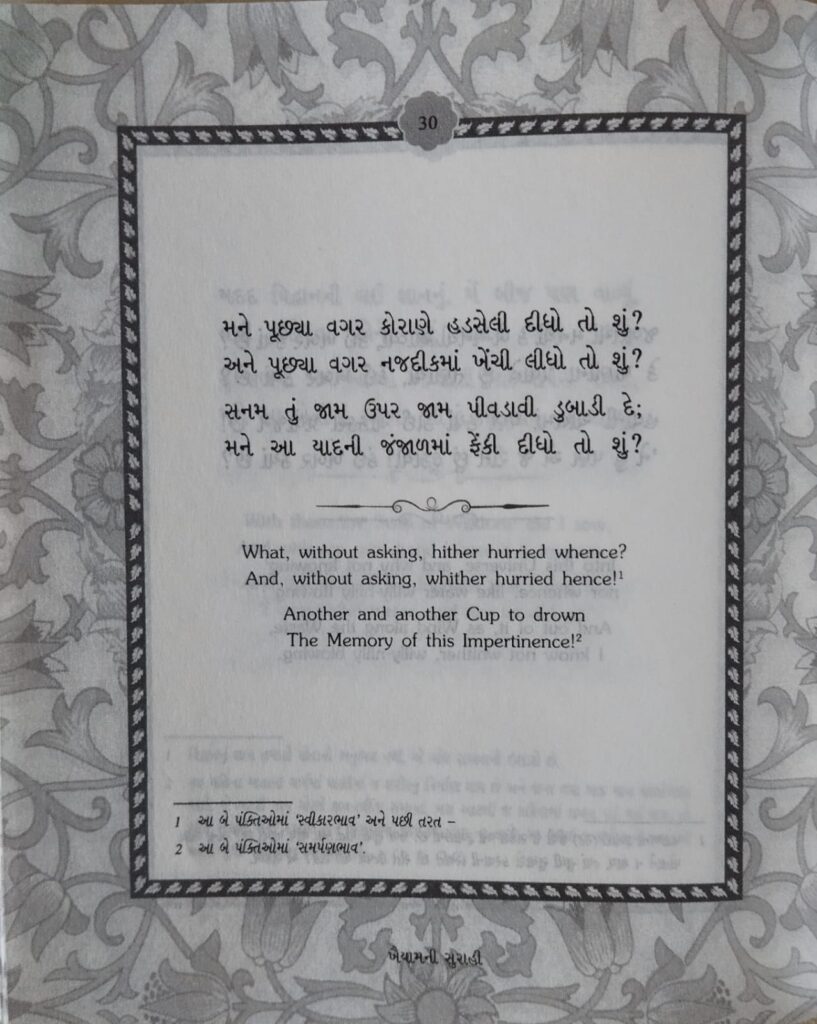 30
મને પૂછ્યા વગર કોરાણે હડસેલી દીધો તો શું?
અને પૂછ્યા વગર નજદીકમાં ખેંચી લીધો તો શું?
સનમ તું જામ ઉપર જામ પીવડાવી ડુબાડી દે;
મને આ યાદની જંજાળમાં ફેંકી દીધો તો શું?
What, without asking, hither hurried whence?
And, without asking, whither hurried hence!¹
Another and another Cup to drown
The Memory of this Impertinence!²
1 આ બે પંક્તિઓમાં ‘સ્વીકારભાવ’ અને પછી તરત –
2 આ બે પંક્તિઓમાં ‘સમર્પણભાવ’.
ખૈયામની સુરાહી